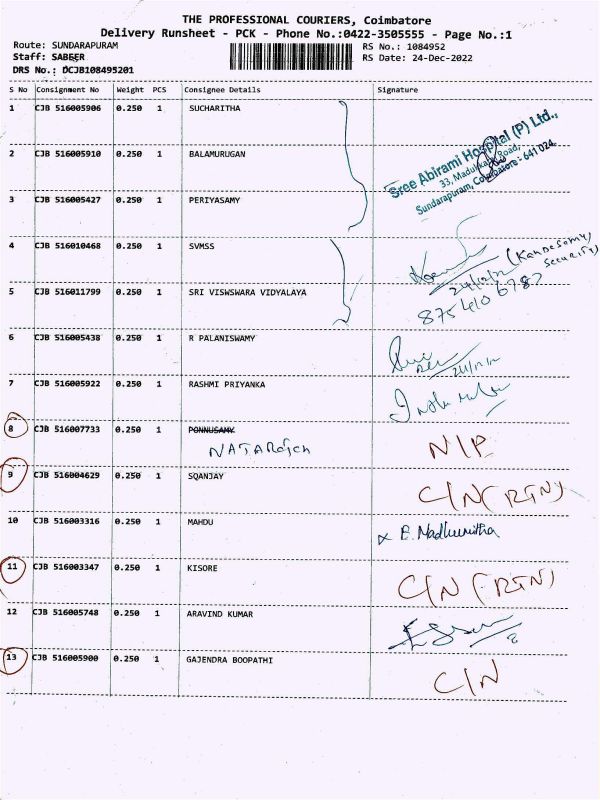 THE PROFESSIONAL COURIERS, Coimbatore
Delivery Runsheet - PCK - Phone No.:0422-3505555 - Page No.:1
Route: SUNDARAPURAM RS No.: 1084952
Staff: SABEER RS Date: 24-Dec-2022
DRS No.: DCJB108495201
S No Consignment No Weight PCS Consignee Details Signature
1 CJB 516005906 0.250 1 SUCHARITHA
Sree Abirami Hospital (P) Ltd.,
33, Madukkarai Road,
Sundarapuram, Coimbatore - 641 024.
2 CJB 516005910 0.250 1 BALAMURUGAN
3 CJB 516005427 0.250 1 PERIYASAMY
4 CJB 516010468 0.250 1 SVMSS
(Kandasamy
Security)
24/12/22
8754106787
5 CJB 516011799 0.250 1 SRI VISWSWARA VIDYALAYA
6 CJB 516005438 0.250 1 R PALANISWAMY
24/12/22
7 CJB 516005922 0.250 1 RASHMI PRIYANKA
8 CJB 516007733 0.250 1 PONNUSAMY N/P
NATARajan
9 CJB 516004629 0.250 1 SQANJAY C/N (RTN)
10 CJB 516003316 0.250 1 MAHDU x E. Madhumitha
11 CJB 516003347 0.250 1 KISORE C/N (RTN)
12 CJB 516005748 0.250 1 ARAVIND KUMAR
13 CJB 516005900 0.250 1 GAJENDRA BOOPATHI C/N